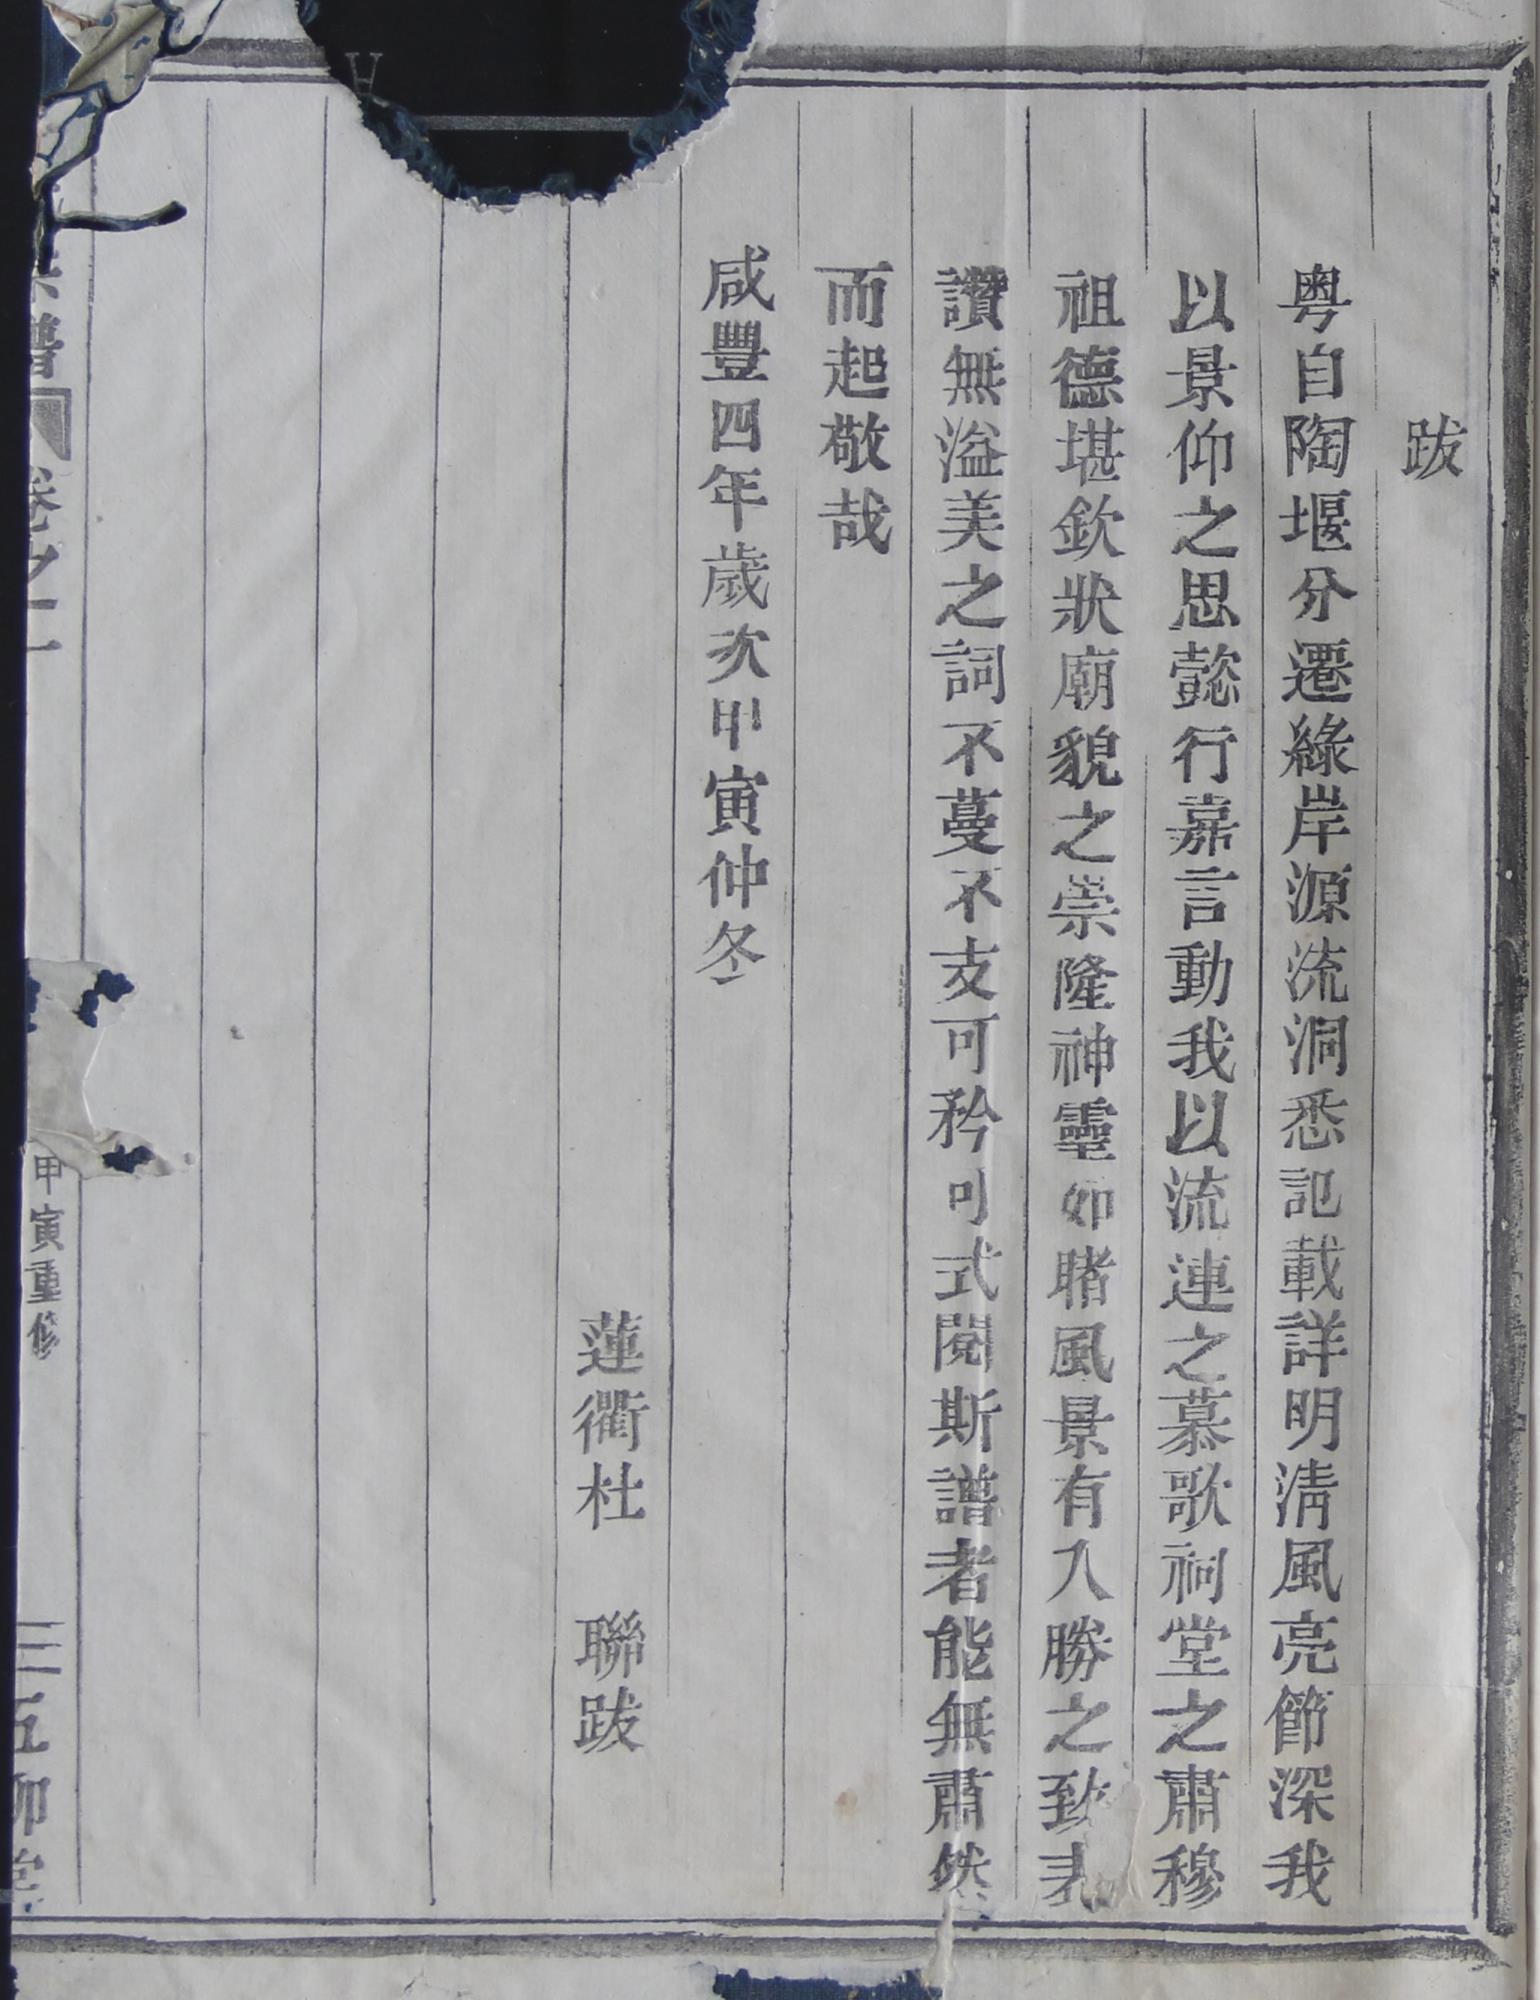 跋
粤自陶堰分遷綠岸源流洞悉記載詳明淸風亮節深我
以景仰之思懿行嘉言動我以流連之慕歌祠堂之肅穆
祖德堪欽狀廟貌之崇隆神靈如睹風景有入勝之致
讚無溢美之詞不蔓不支可矜可式閱斯譜者能無肅然
而起敬哉
咸豐四年歲次甲寅仲冬
蓮衢杜　聯跋
譜 卷之一 甲寅重修 三 五柳堂